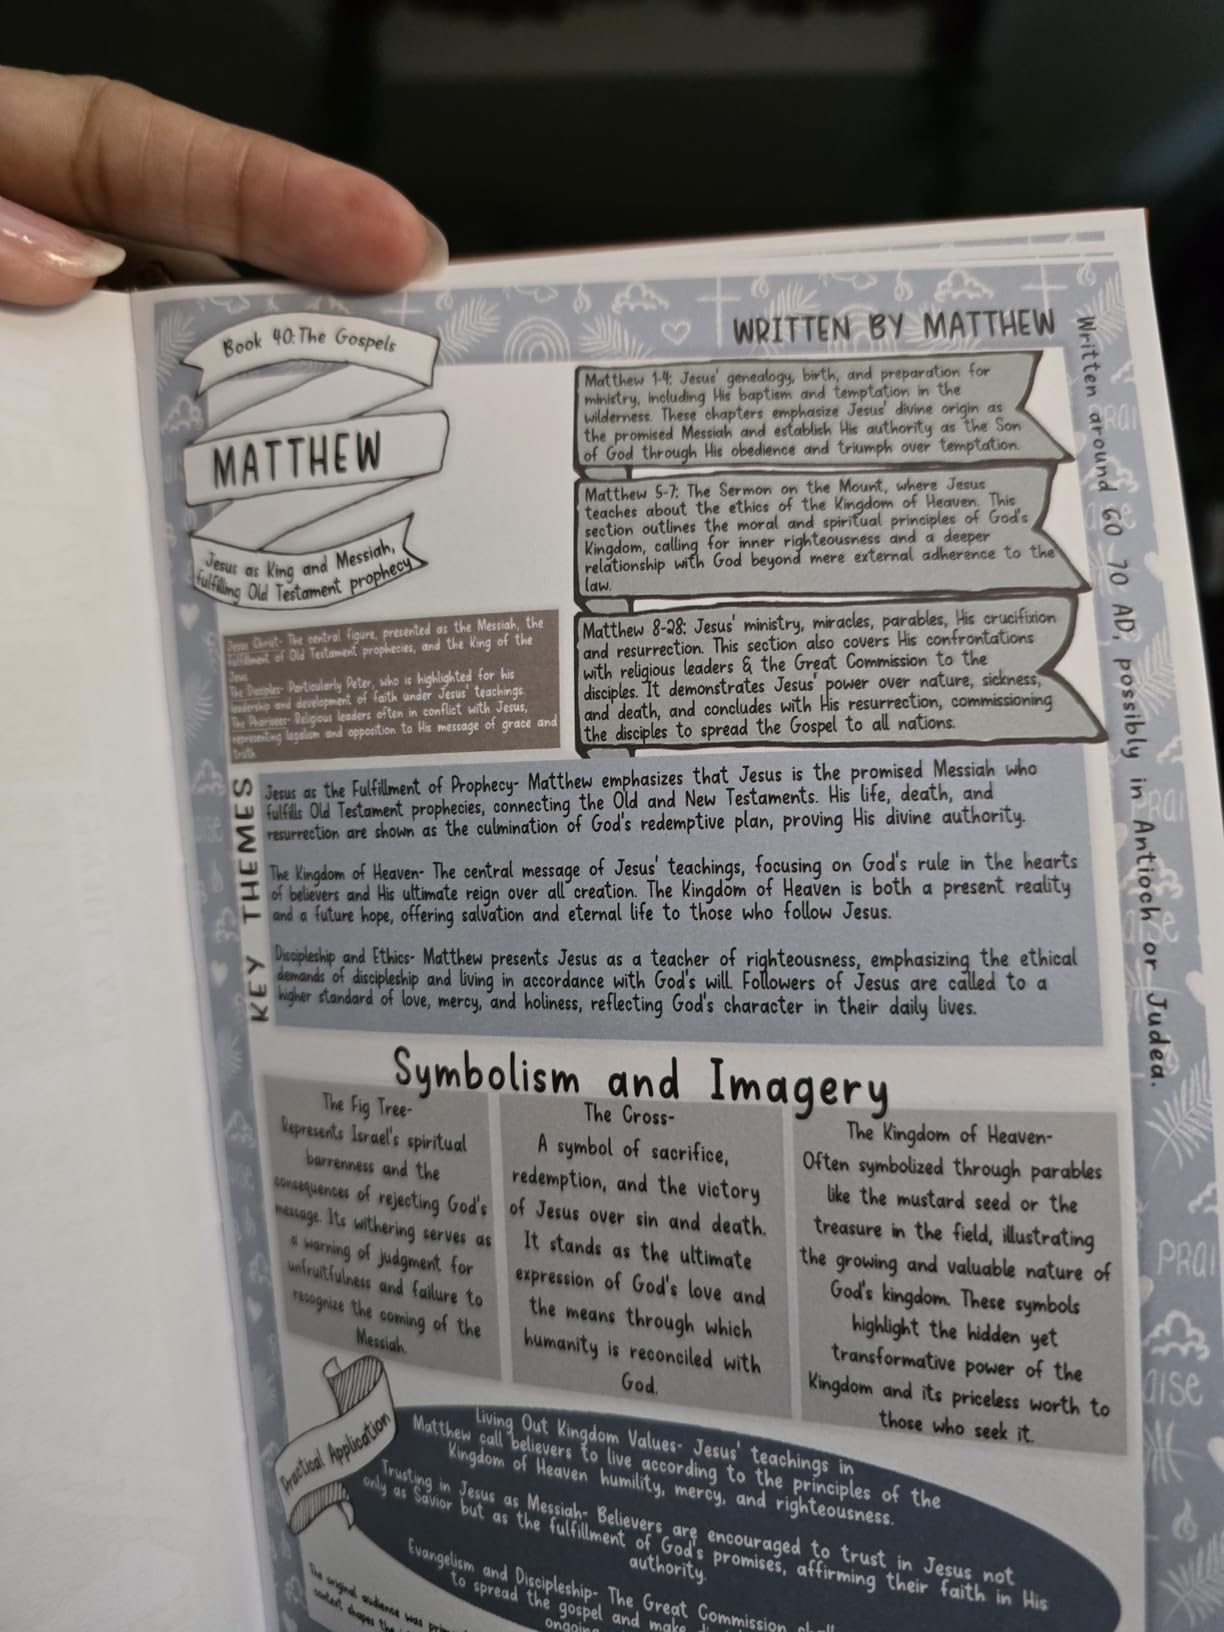 Book 40: The Gospels
MATTHEW
Jesus as King and Messiah,
fulfilling Old Testament prophecy
WRITTEN BY MATTHEW
Written around 60 70 AD, possibly in Antioch or Judea.
Matthew 1-4: Jesus' genealogy, birth, and preparation for
ministry, including His baptism and temptation in the
wilderness. These chapters emphasize Jesus' divine origin as
the promised Messiah and establish His authority as the Son
of God through His obedience and triumph over temptation.
Matthew 5-7: The Sermon on the Mount, where Jesus
teaches about the ethics of the Kingdom of Heaven. This
section outlines the moral and spiritual principles of God's
Kingdom, calling for inner righteousness and a deeper
relationship with God beyond mere external adherence to the
law.
Matthew 8-28: Jesus' ministry, miracles, parables, His crucifixion
and resurrection. This section also covers His confrontations
with religious leaders & the Great Commission to the
disciples. It demonstrates Jesus' power over nature, sickness,
and death, and concludes with His resurrection, commissioning
the disciples to spread the Gospel to all nations.
Jesus Christ- The central figure, presented as the Messiah, the
fulfillment of Old Testament prophecies, and the King of the
Jews.
The Disciples- Particularly Peter, who is highlighted for his
leadership and development of faith under Jesus' teachings.
The Pharisees- Religious leaders often in conflict with Jesus,
representing legalism and opposition to His message of grace and
truth.
KEY THEMES
Jesus as the Fulfillment of Prophecy- Matthew emphasizes that Jesus is the promised Messiah who
fulfills Old Testament prophecies, connecting the Old and New Testaments. His life, death, and
resurrection are shown as the culmination of God's redemptive plan, proving His divine authority.
The Kingdom of Heaven- The central message of Jesus' teachings, focusing on God's rule in the hearts
of believers and His ultimate reign over all creation. The Kingdom of Heaven is both a present reality
and a future hope, offering salvation and eternal life to those who follow Jesus.
Discipleship and Ethics- Matthew presents Jesus as a teacher of righteousness, emphasizing the ethical
demands of discipleship and living in accordance with God's will. Followers of Jesus are called to a
higher standard of love, mercy, and holiness, reflecting God's character in their daily lives.
Symbolism and Imagery
The Fig Tree-
Represents Israel's spiritual
barrenness and the
consequences of rejecting God's
message. Its withering serves as
a warning of judgment for
unfruitfulness and failure to
recognize the coming of the
Messiah.
The Cross-
A symbol of sacrifice,
redemption, and the victory
of Jesus over sin and death.
It stands as the ultimate
expression of God's love and
the means through which
humanity is reconciled with
God.
The Kingdom of Heaven-
Often symbolized through parables
like the mustard seed or the
treasure in the field, illustrating
the growing and valuable nature of
God's kingdom. These symbols
highlight the hidden yet
transformative power of the
Kingdom and its priceless worth to
those who seek it.
Practical Application
Living Out Kingdom Values- Jesus' teachings in
Matthew call believers to live according to the principles of the
Kingdom of Heaven humility, mercy, and righteousness.
Trusting in Jesus as Messiah- Believers are encouraged to trust in Jesus not
only as Savior but as the fulfillment of God's promises, affirming their faith in His
authority.
Evangelism and Discipleship- The Great Commission
to spread the gospel and make
The original audience was
context shapes the